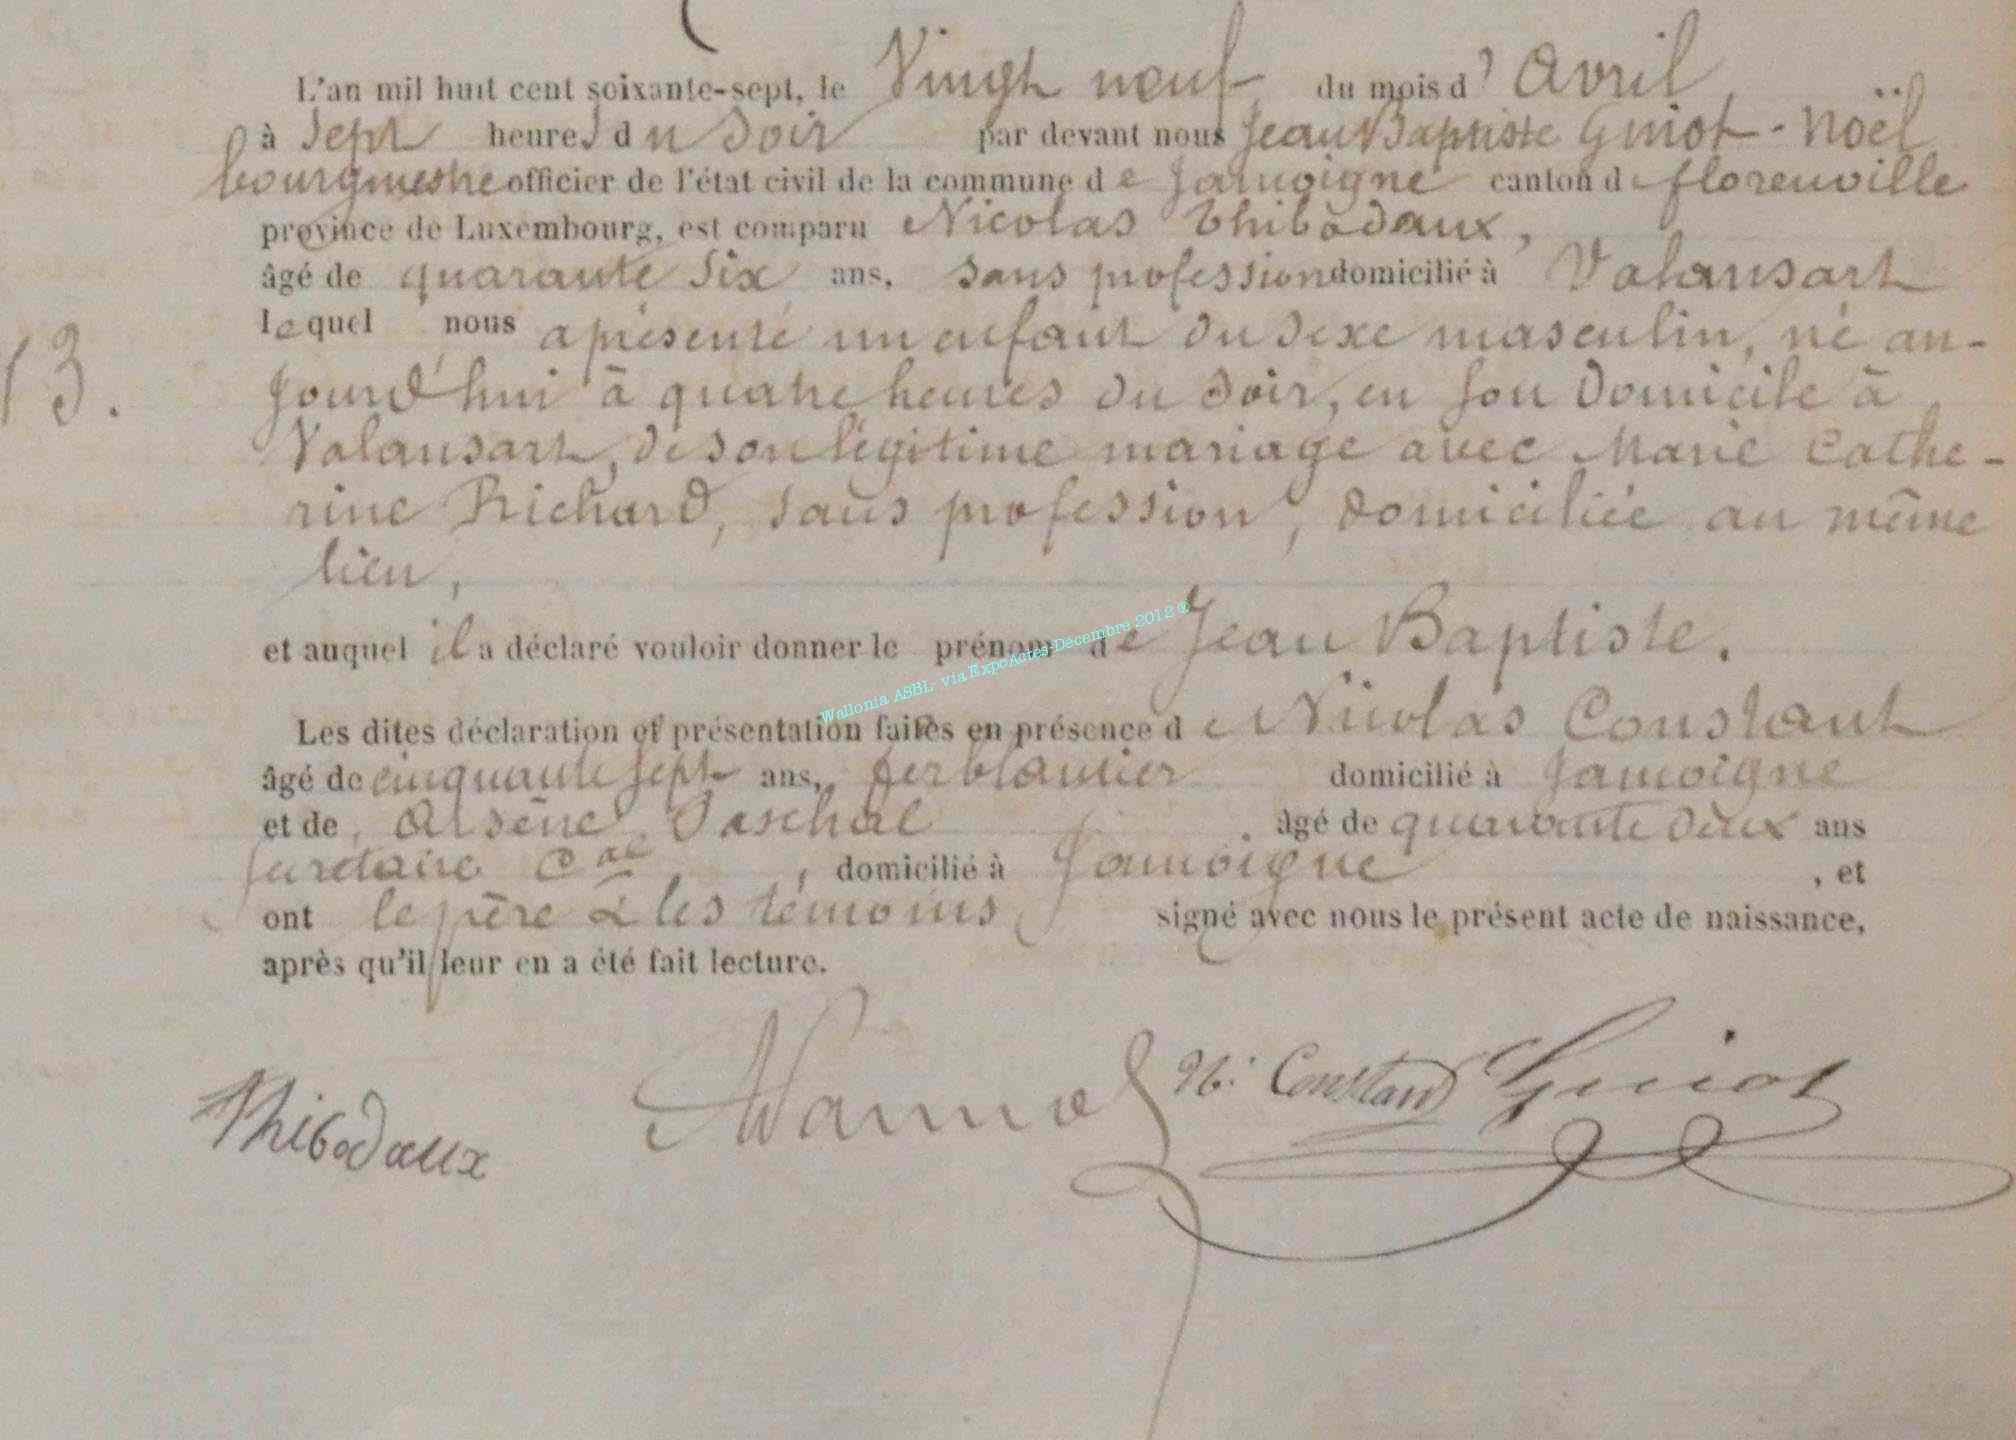 L'an mil huit cent soixante-sept, le Vingt neuf du mois d' Avril
à Sept heures du Soir par devant nous Jean Baptiste Guiot-Noël
bourgmestre officier de l'état civil de la commune de Jamoigne canton de florenville
province de Luxembourg, est comparu Nicolas Thibodaux,
âgé de quarante Six ans, sans profession domicilié à Valansart
lequel nous a présenté un enfant du sexe masculin, né au-
13.
jourd'hui à quatre heures du Soir, en son Domicile à
Valansart, de son légitime mariage avec Marie Cathe-
rine Richard, sans profession, domiciliée au même
lieu,
et auquel il a déclaré vouloir donner le prénom de Jean Baptiste.
Wallonia ASBL via ExpoActes-Décembre 2012 ©
Les dites déclaration et présentation faites en présence de Nicolas Constant
âgé de cinquante sept ans, ferblantier domicilié à Jamoigne
et de Arsène Paschal âgé de quarante deux ans
secrétaire Cal, domicilié à Jamoigne, et
ont le père & les témoins signé avec nous le présent acte de naissance,
après qu'il leur en a été fait lecture.
Thibodaux N. Constant Guiot